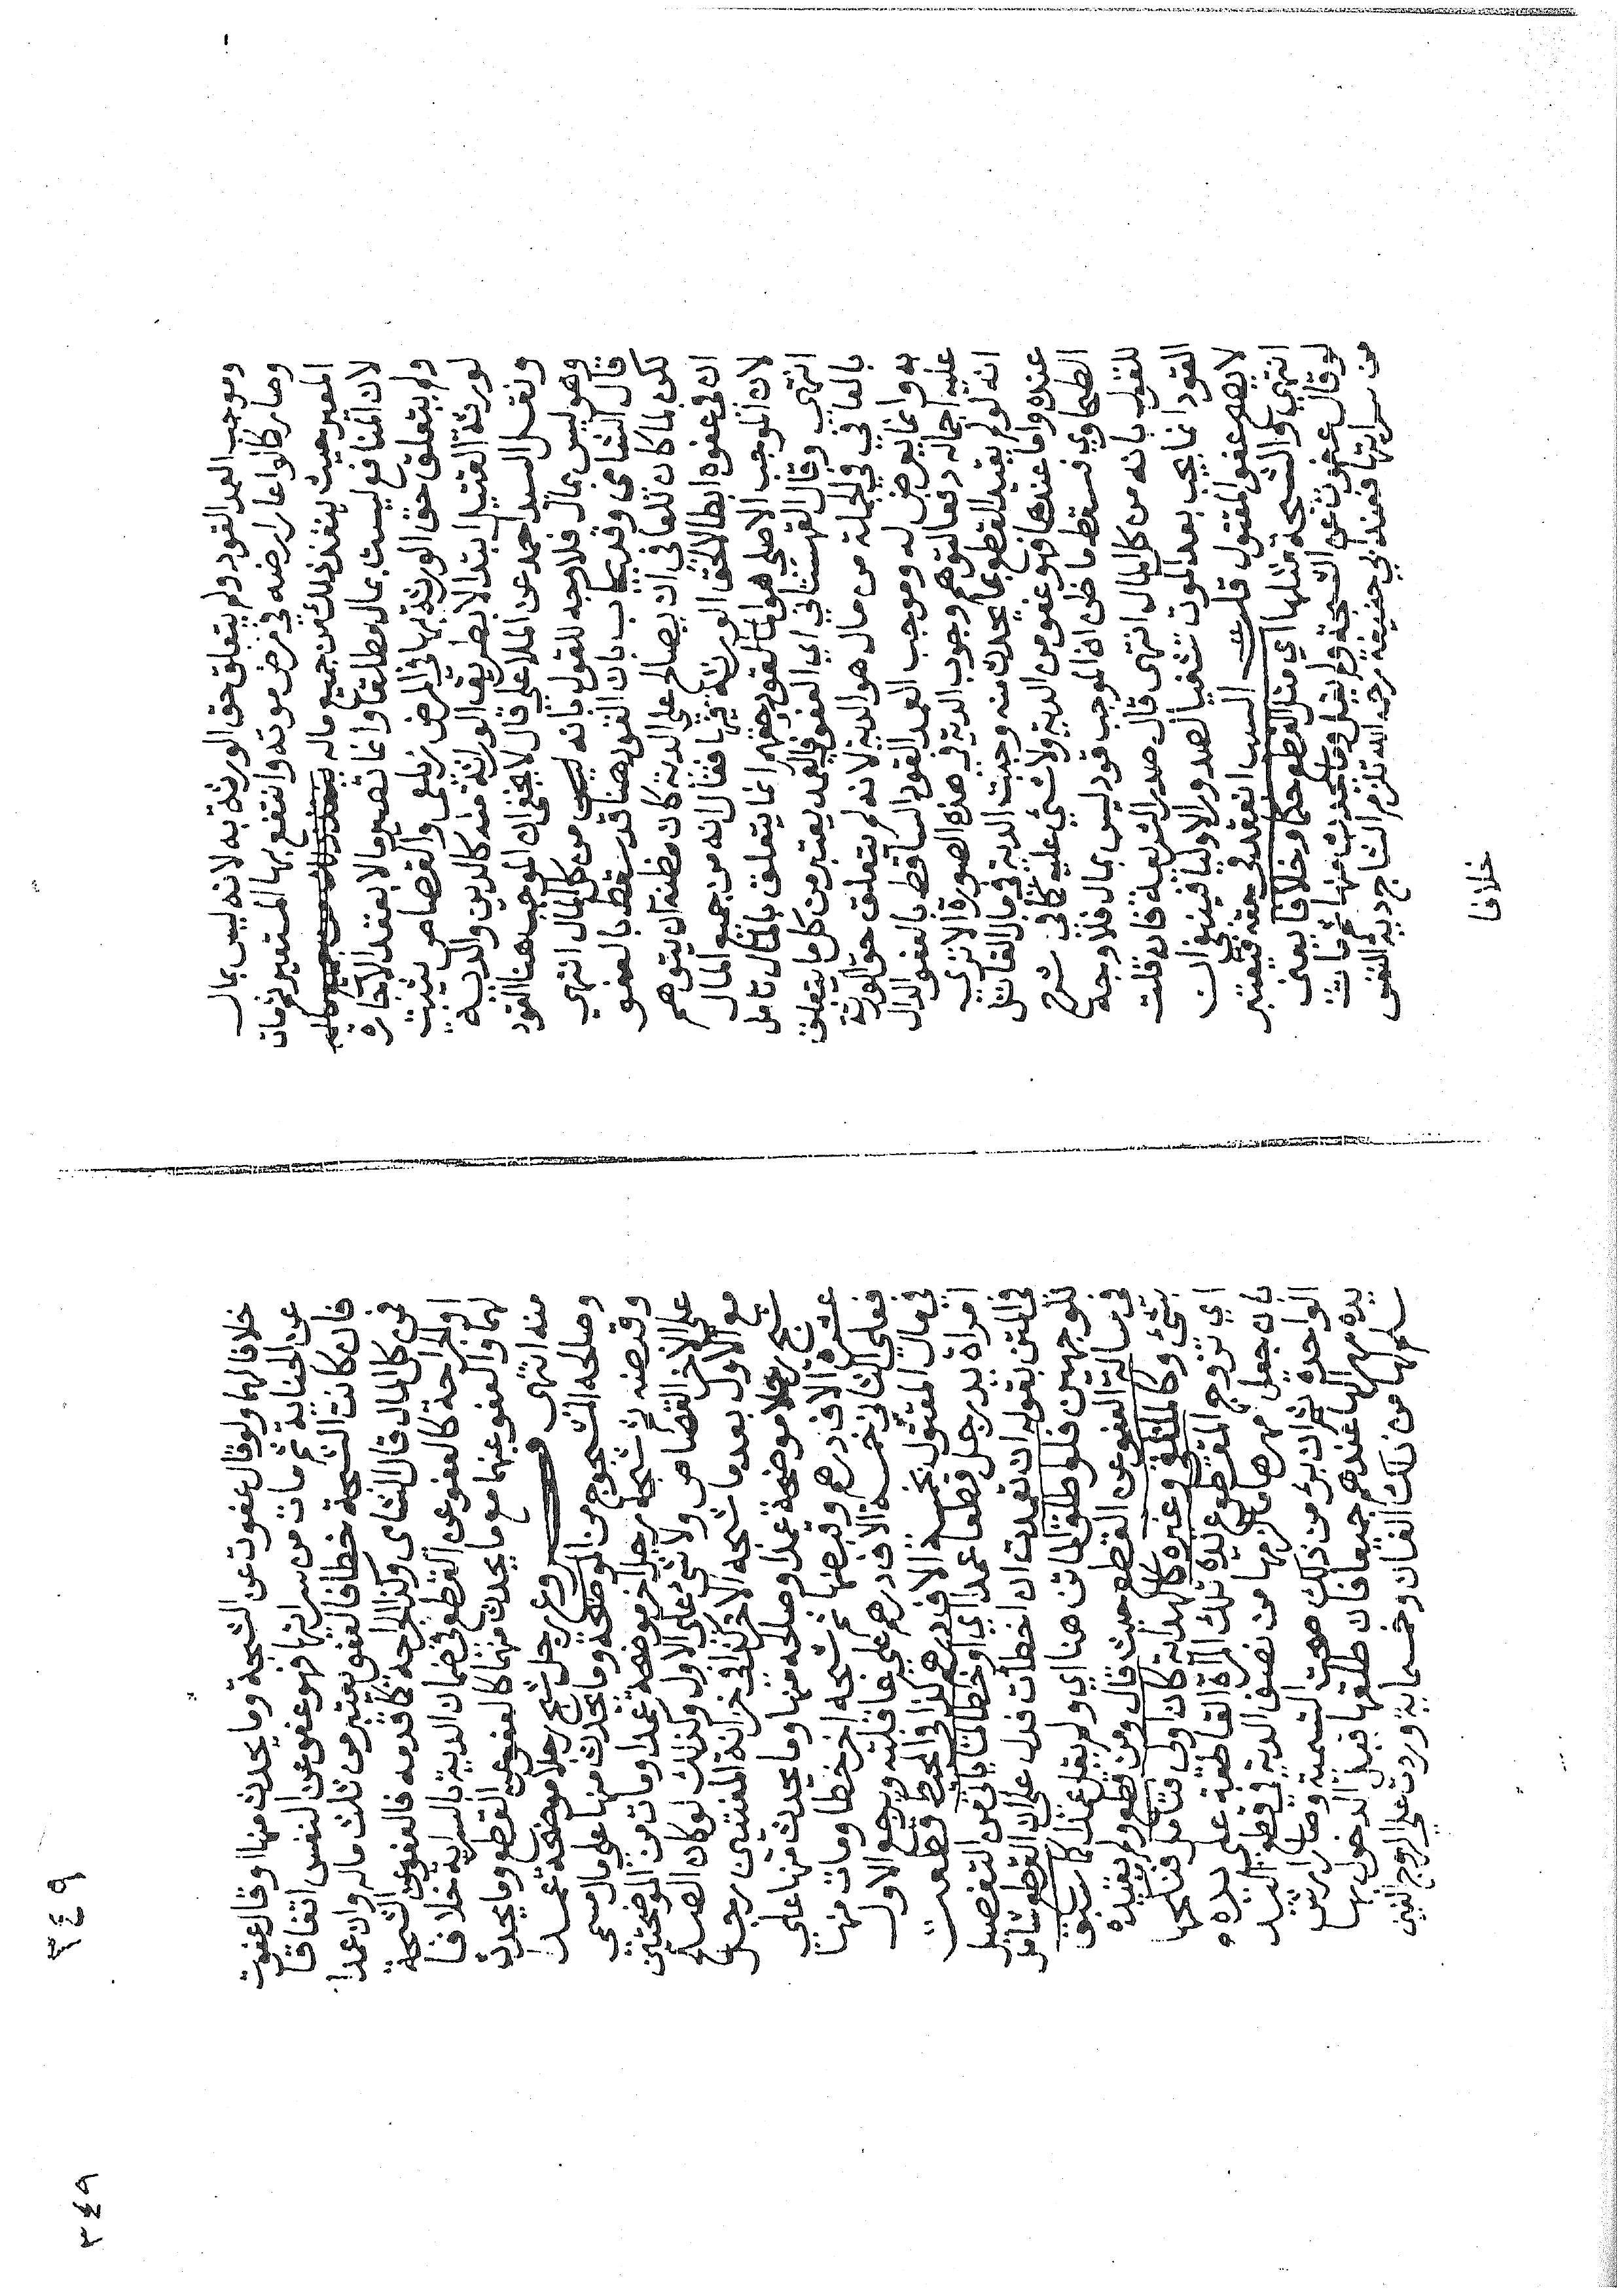 وموجب العمد القود ولم يتعلق حق الورثة به لانه ليس بمال
وصار كالو اعار ارضه في مرض موته وانتفع بها المستعير ثم مات
المعير حيث ينفذ ذلك من جميع ماله
لان المنافع ليست بمال مطلقا وانما تصير مالا بعقد الاجارة
ولم يتعلق حق الورثة بها في المرض زيلعي والقصاص يثبت
لورثة القتيل ابتدا لا بطريق الوراثة منه كالدين والدية
ونقل السيد احمد عن الملا علي قال لا يخفى ان الموجب هنا القود
وهو ليس بمال فلا وجه للقول بانه من كل المال انتهى
قال الشامي وقد يجاب بان القود هنا قد سقط بالعفو
لكن لما كان للعافي ان يصالح على الدية كان مظنة ان يتوهم
ان في عفوه ابطالا لحق الورثة فيها فقال انه من جميع المال
لان الموجب الاصلي هو القود وحقهم انما يتعلق بالمال تامل
انتهى وقال القهستاني اي العفو في العمد يعتبر من كل ما يتعلق
بالعافي في الجملة من مال هو الدية لانه لم يتعلق حق الورثة
به وانما يعرض له وموجب العمد القود الساقط بالعفو الدال
عليه اجماله دفعا لتوهم وجوب الدية في هذه الصورة الا ترى
انه لو لم يقيد القطع بما يحدث منه وجبت الدية في مال القاتل
عنده واما عندهما فهو عفو من الدية ولا شي عليه كما في شرح
الطحاوي فسقط ما ظن ان الموجب قود ليس بمال فلا وجه
للقول بانه من كل المال انتهى قال صدر الشريعة فان قلت
القود انما يجب بعد الموت تشفيا لصدور الاوليا فينبغي ان
لا يصح عفو المقتول قلت السبب انعقد في حقه فيعتبر
انتهى والشجة مثلها اي مثل القطع حكما وخلافا يعني
لو قال عفوت عن الشجة ولم يقل وما يحدث منها ثم مات
من سرايتها فعند ابي حنيفة رحمه الله تلزم الشاج دية النفس
خلافا
٣٤٩
خلافا لهما ولو قال عفوت عن الشجة وما يحدث منها او قال عفوت
عن الجناية ثم مات من سرايتها فهو عفو عن النفس اتفاقا
فان كانت الشجة خطا فالعفو يعتبر من ثلث ماله وان عمدا
فمن كل المال قال الشامي وكذا الجراحة كما قدمه فالعفو عن الشجة
او الجراحة كالعفو عن القطع في ضمان الدية بالسراية خلافا
لهما والعفو عنهما مع ما يحدث منهما كالعفو عن القطع وما يحدث
منه انتهى فروع رجل شج رجلا موضحة عمدا
وصالحه المشجوج من الموضحة وما يحدث منها على مال مسمى
وقبضه ثم شجه رجل اخر موضحة عمدا ومات من الموضحتين
على الاخر القصاص ولا شي على الاول وكذلك لو كان الصلح
مع الاول بعد ما شجه الاخر كذا في خزانة المفتيين رجل
شج رجلا موضحة عمدا وصالحه منها وما يحدث منها على
عشرة الاف درهم وقبضها ثم شجه اخر خطا ومات منها
فعلى الثاني خمسة الاف درهم على عاقلته ويرجع الاول
في مال المقتول بخمسة الاف درهم كذا في المحيط قطعت
امراة يد رجل قطعا عمدا اي او خطا لما ياتي من التفصيل
في المتن بقوله ان تعمدت ان اخطات فدل على ان القطع شامل
للوجهين فلو اطلق الماتن هنا اي ولم يقل عمدا كما سبق
في مسالة العفو عن القطع حيث قال ومن قطع ولم يقيده
بشئ وكالملتقى وغيره كالهداية كان اولى فتامل فنكحها
اي تزوج المقطوع يده تلك المراة القاطعة على يده
بان جعل مهرها ما لزمها من نصف الدية في قطع اليد
الواحدة ثم ان برئ من ذلك صحت التسمية وصار ارش
يده مهرا لها عندهم جميعا فان طلقها قبل الدخول بها
سلم لها من ذلك الفان وخمسماية وردت على الزوج الفين
٣٤٩